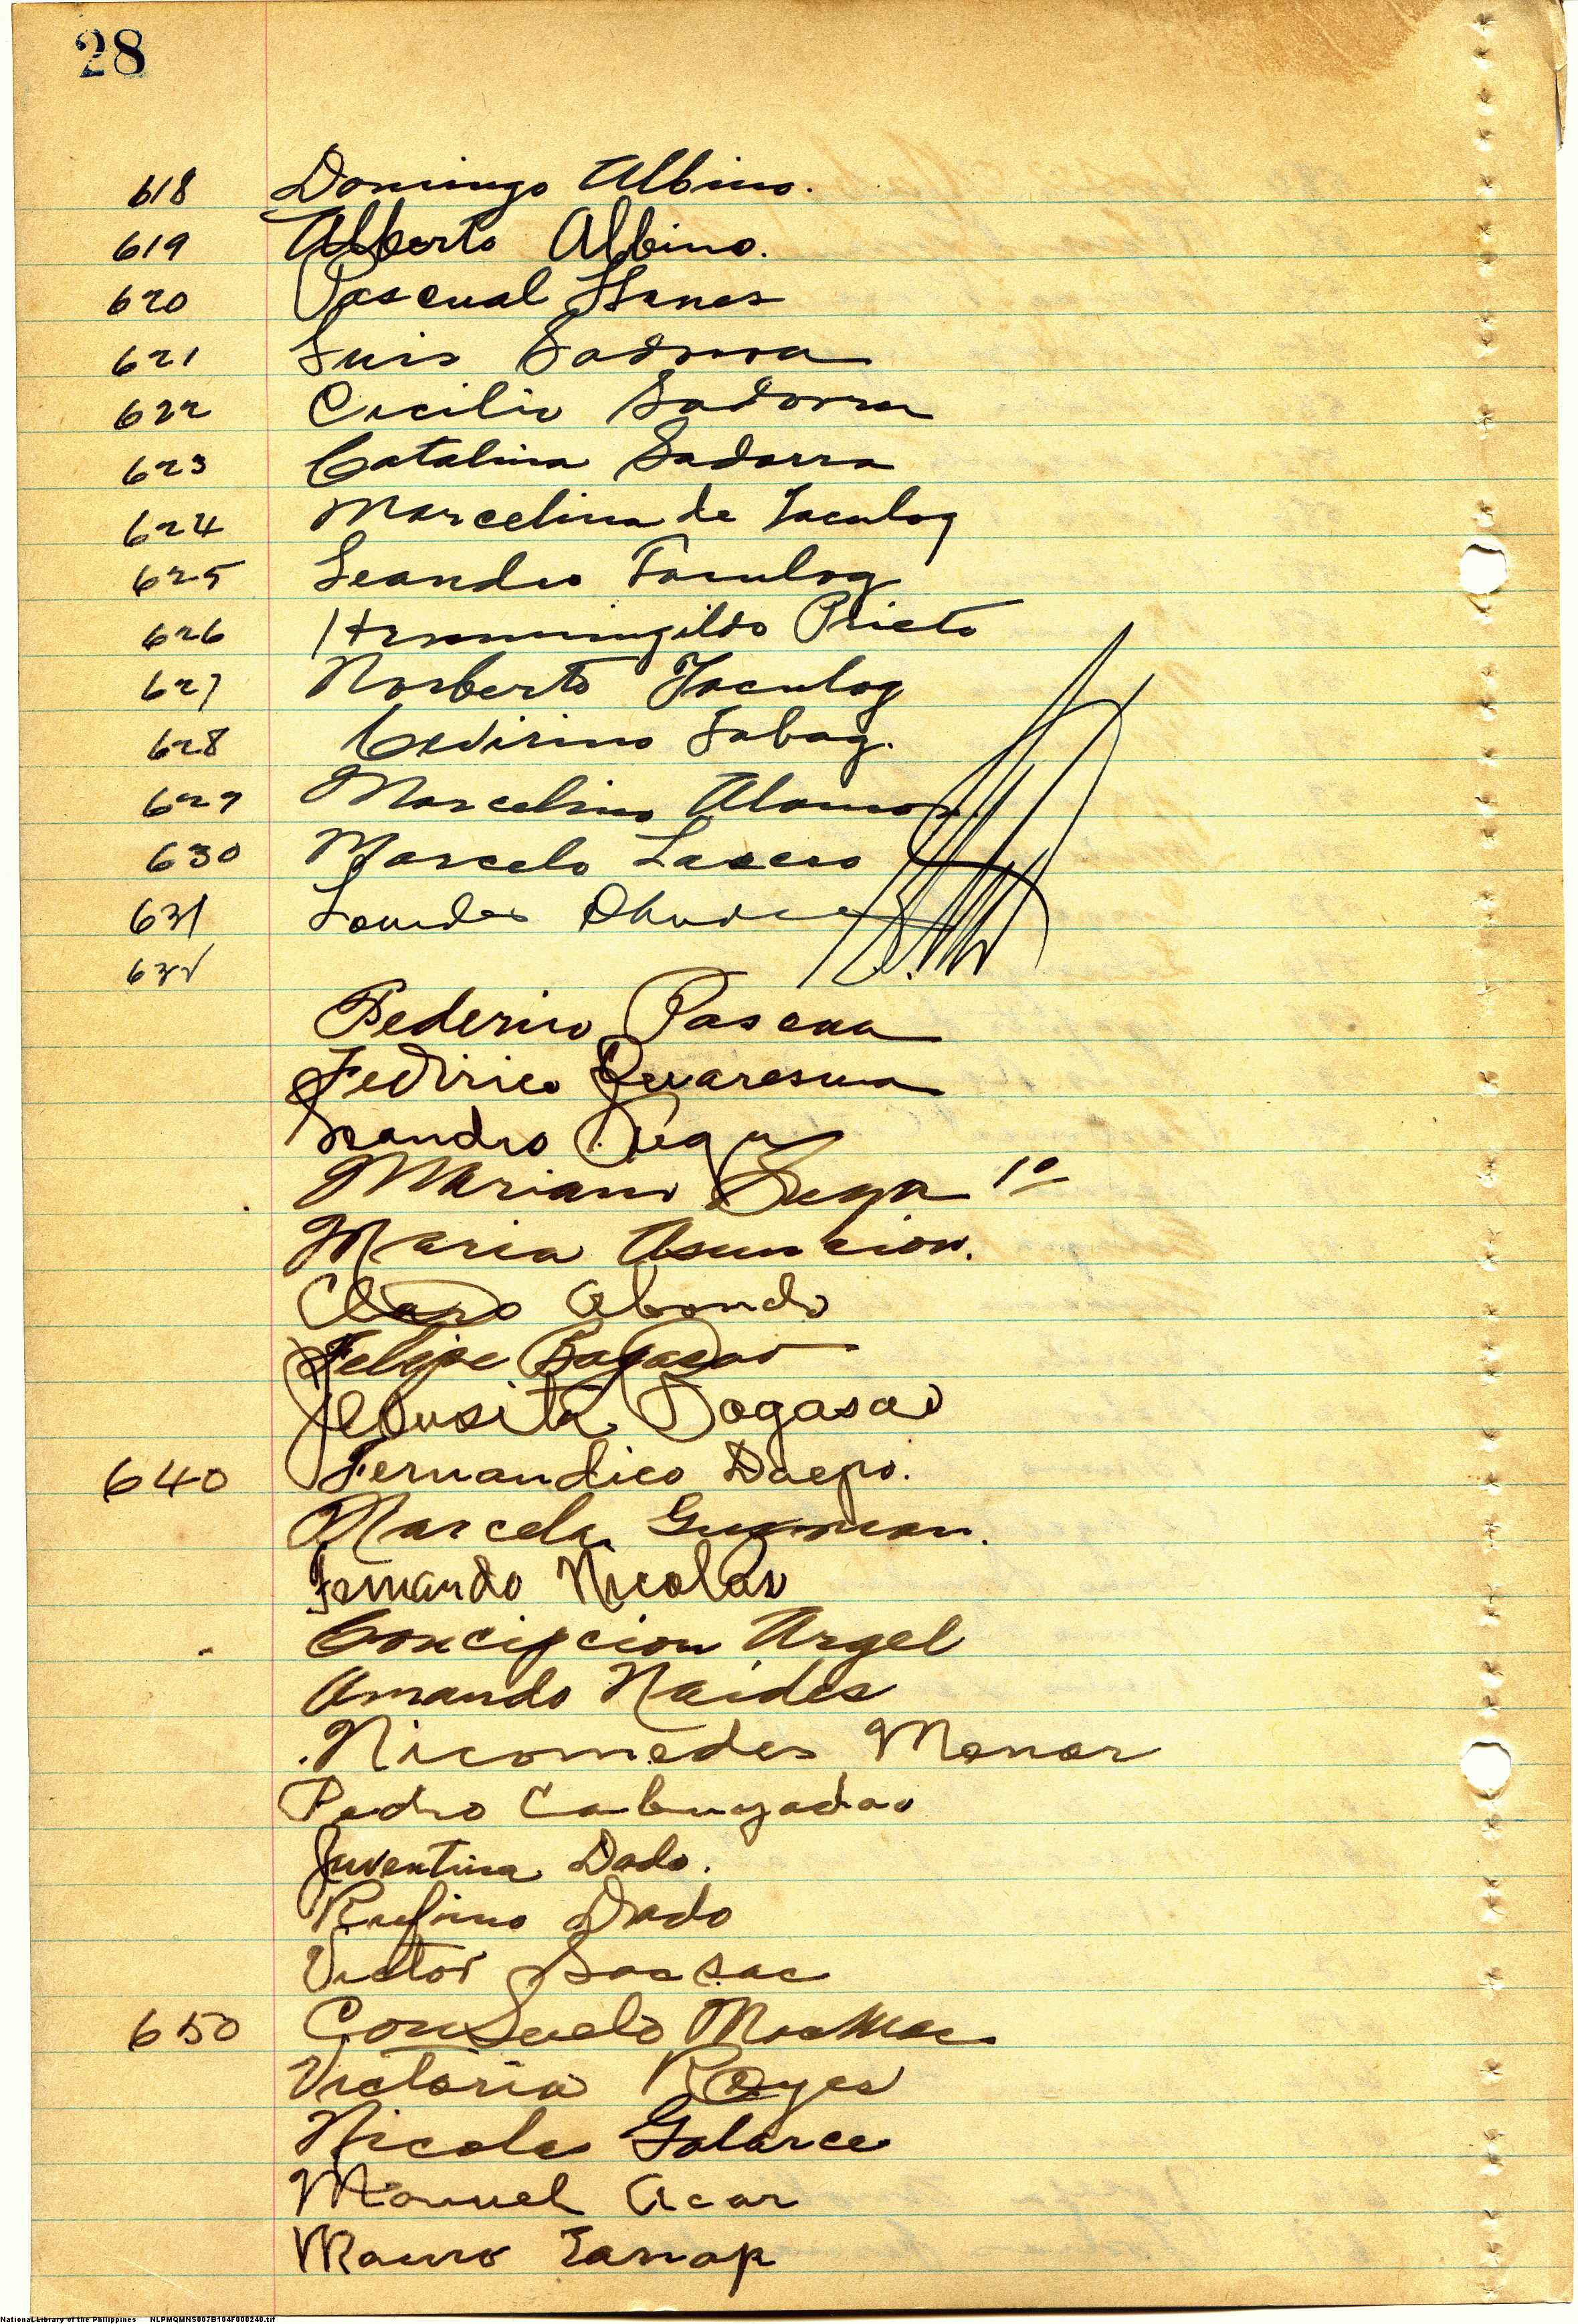 28
618 Domingo Albino.
619 Alberto Albino.
620 Pascual Llanes
621 Luis Sadorra
622 Cicilio Sadorra
623 Catalina Sadorra
624 Marcelina de Taculog
625 Leandro Taculog
626 Hermmingildo Prieto
627 Norberto Taculog
628 Cevirino Tabag.
629 Marcelino Alamo
630 Marcelo Lazaro
631 Lourdes
632
Federico Pascua
Fedirico Quaresma
Leandro Vega
Mariano Vega 1o
Maria Asuncion.
Claro Abondo
Felipe Bagasao
Jesusita Bagasao
640 Fernandico Daepo.
Marcela Guzman.
Fernando Nicolas
Concipcion Argel
Amando Naides
Nicomedes Monar
Pedro Cabuyadao
Juventina Dado.
Rufino Dado
Victor Sacsac
650 Consuelo MacMac
Victoria Reyes
Nicolas Galarce
Manuel Acar
Mauro Tanap
National Library of the Philippines NLPMQMNS007B104F000240.tif